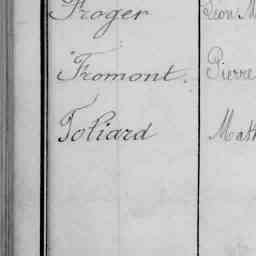 Froger Léon M
Fromont. Pierre
Foliard Math